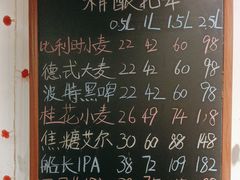 精酿扎啤
0.5L 1L 1.5L 2.5L
比利时小麦 22 42 60 98
德式大麦 22 42 60 98
波特黑啤 22 42 60 98
桂花小麦 26 49 74 118
焦糖艾尔 30 60 88 148
船长IPA 38 72 109 182